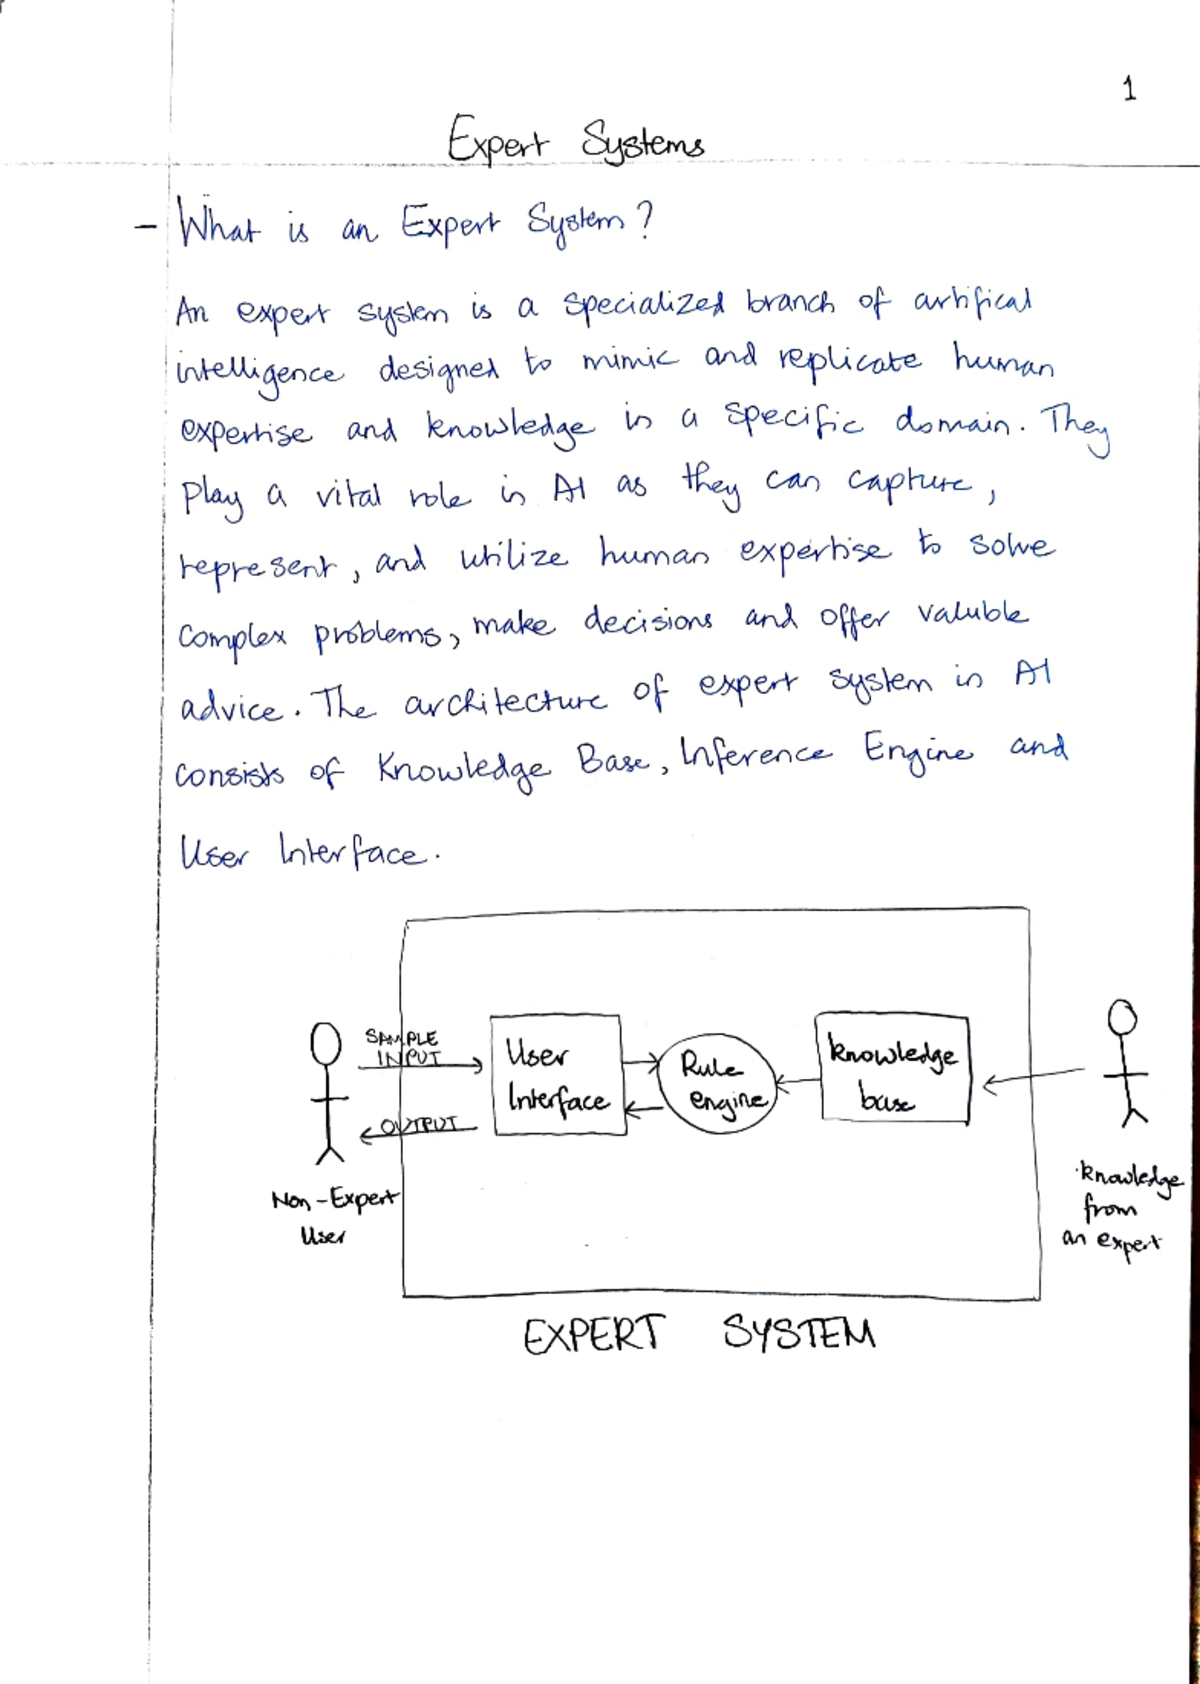 1
Expert Systems
- What is an Expert System?
An expert system is a specialized branch of artifical
intelligence designed to mimic and replicate human
expertise and knowledge in a specific domain. They
play a vital role in AI as they can capture,
represent, and utilize human expertise to solve
complex problems, make decisions and offer valuble
advice. The architecture of expert system in AI
consists of Knowledge Base, Inference Engine and
User Interface.
SAMPLE
INPUT
OUTPUT
Non-Expert
User
User
Interface
Rule
engine
knowledge
base
knowledge
from
an expert
EXPERT SYSTEM